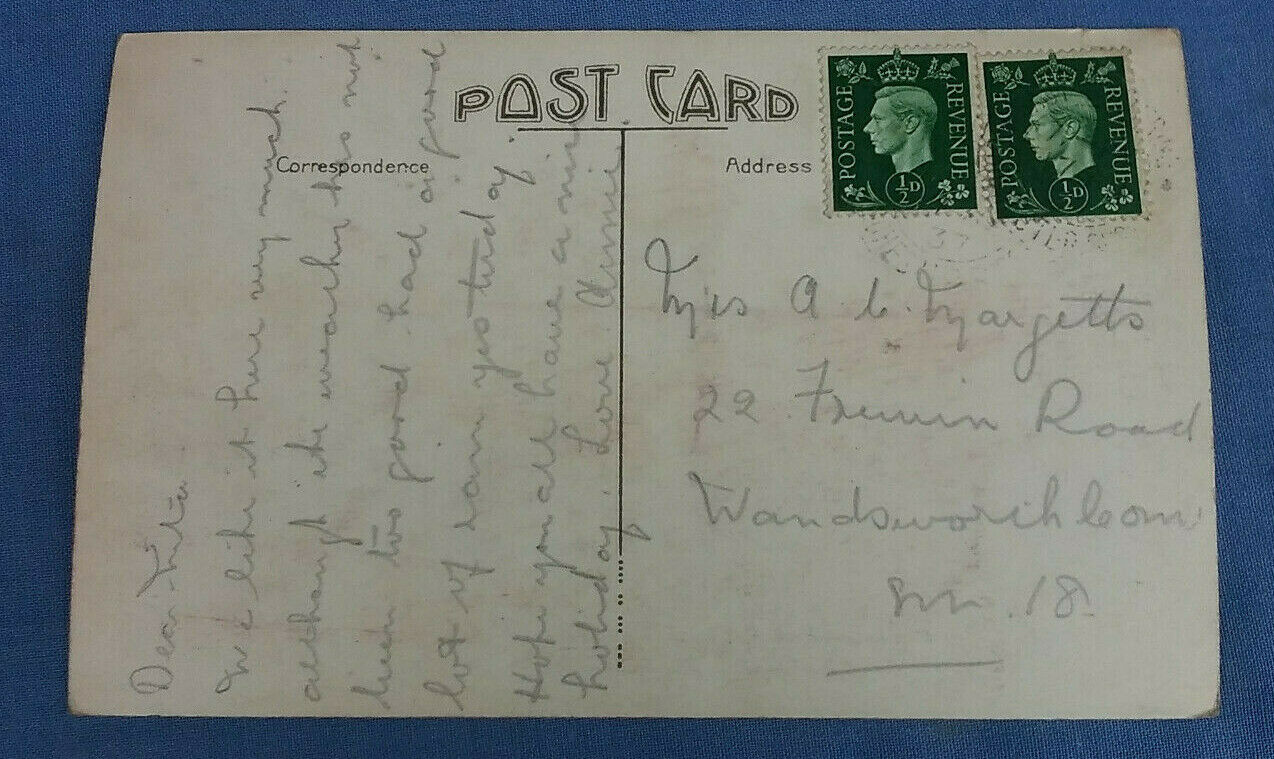 POST CARD
Correspondence
Address
POSTAGE REVENUE
½D
POSTAGE REVENUE
½D
Dear
We like it here very much.
although the weather has not
been too good had a good
lot of rain yesterday.
Hope you all have a nice
holiday. Love Annie.
Mrs A. C. Margetts
22 Frewin Road
Wandsworth Com
S.W. 18.